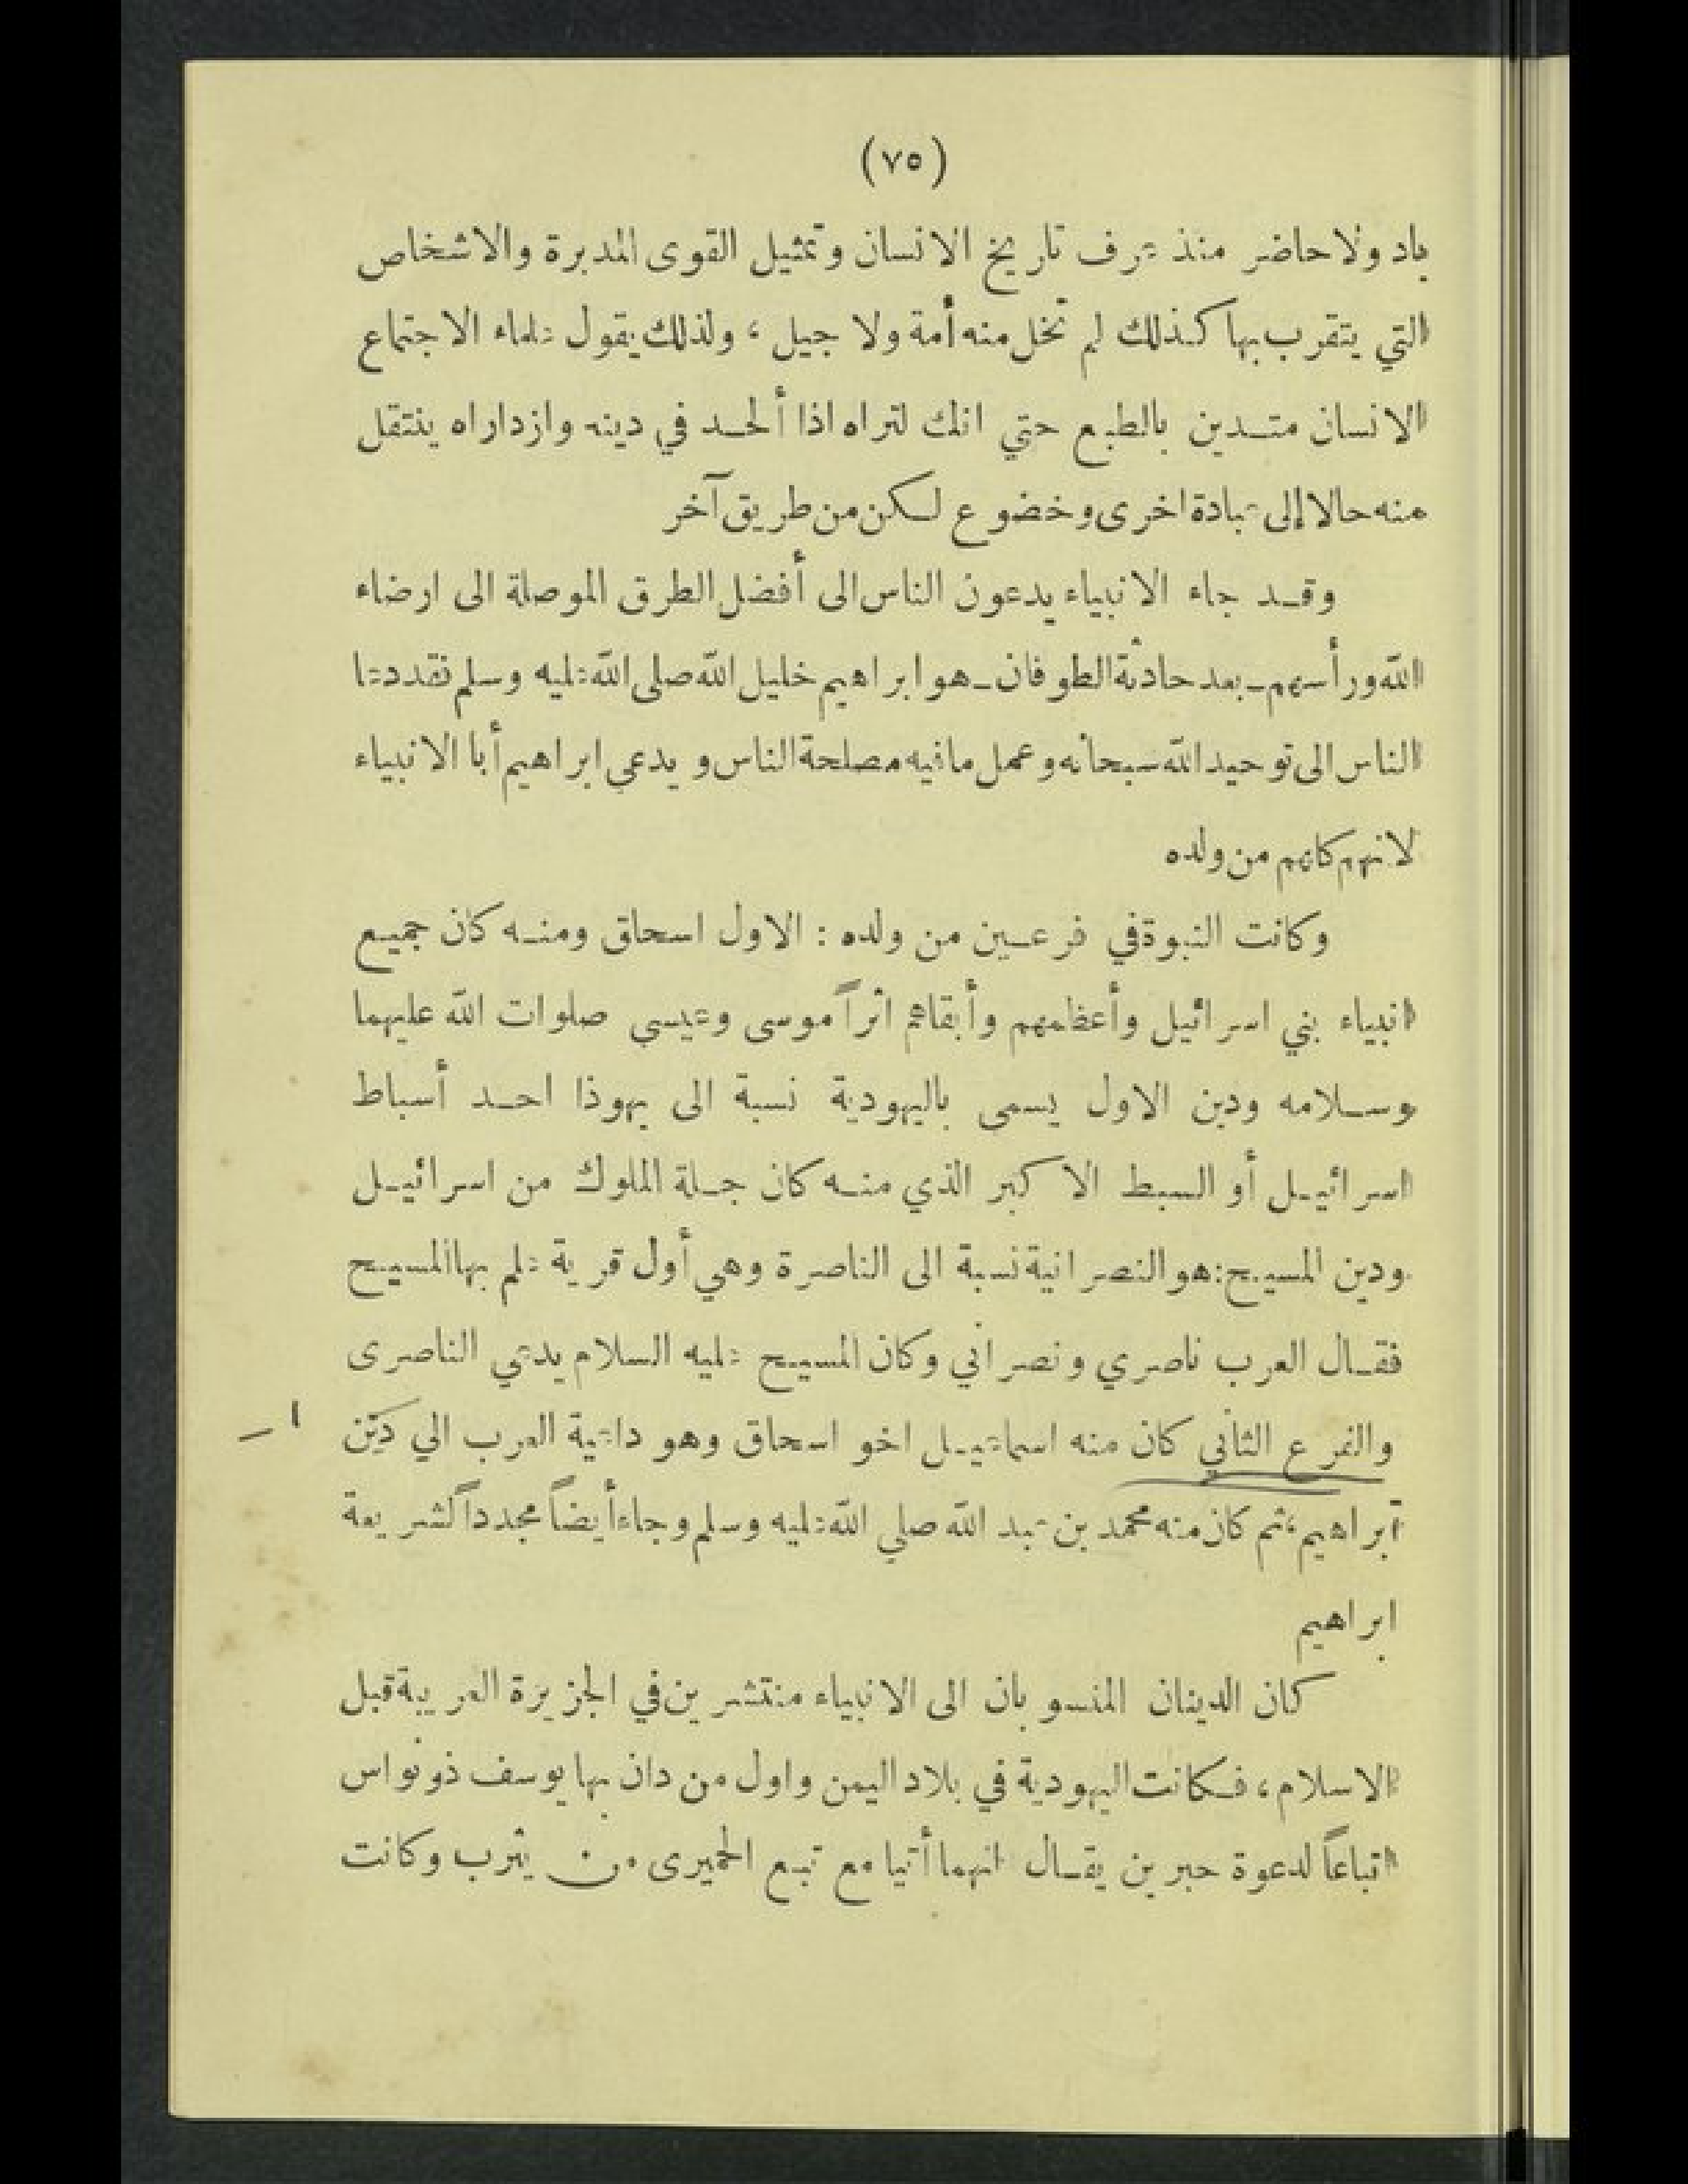 (٧٥)
باد ولا حاضر منذ عرف تاريخ الانسان وتمثيل القوى المدبرة والاشخاص
التي يتقرب بها كذلك لم تخل منه أمة ولا جيل ، ولذلك يقول علماء الاجتماع
الانسان متدين بالطبع حتي انك لتراه اذا ألحد في دينه وازداراه ينتقل
منه حالا إلى عبادة اخرى وخضوع لكن من طريق آخر
وقد جاء الانبياء يدعون الناس الى أفضل الطرق الموصلة الى ارضاء
الله ورأسهم ـ بعد حادثة الطوفان ـ هو ابراهيم خليل الله صلى الله عليه وسلم فقد دعا
الناس الى توحيد الله سبحانه وعمل ما فيه مصلحة الناس ويدعي ابراهيم أبا الانبياء
لانهم كلهم من ولده
وكانت النبوة في فرعين من ولده : الاول اسحاق ومنه كان جميع
انبياء بني اسرائيل وأعظمهم وأبقاهم اثراً موسى وعيسي صلوات الله عليهما
وسلامه ودين الاول يسمى باليهودية نسبة الى يهوذا احد أسباط
اسرائيل أو السبط الاكبر الذي منه كان جلة الملوك من اسرائيل
ودين المسيح : هو النصرانية نسبة الى الناصرة وهي أول قرية علم بها المسيح
فقال العرب ناصري ونصراني وكان المسيح عليه السلام يدعي الناصرى
والفرع الثاني كان منه اسماعيل اخو اسحاق وهو داعية العرب الي دين
ابراهيم ، ثم كان منه محمد بن عبد الله صلي الله عليه وسلم وجاء أيضاً مجدداً لشريعة
ابراهيم
كان الدينان المنسوبان الى الانبياء منتشرين في الجزيرة العربية قبل
الاسلام ، فكانت اليهودية في بلاد اليمن واول من دان بها يوسف ذو نواس
اتباعاً لدعوة حبرين يقال انهما أتيا مع تبع الحميرى من يثرب وكانت